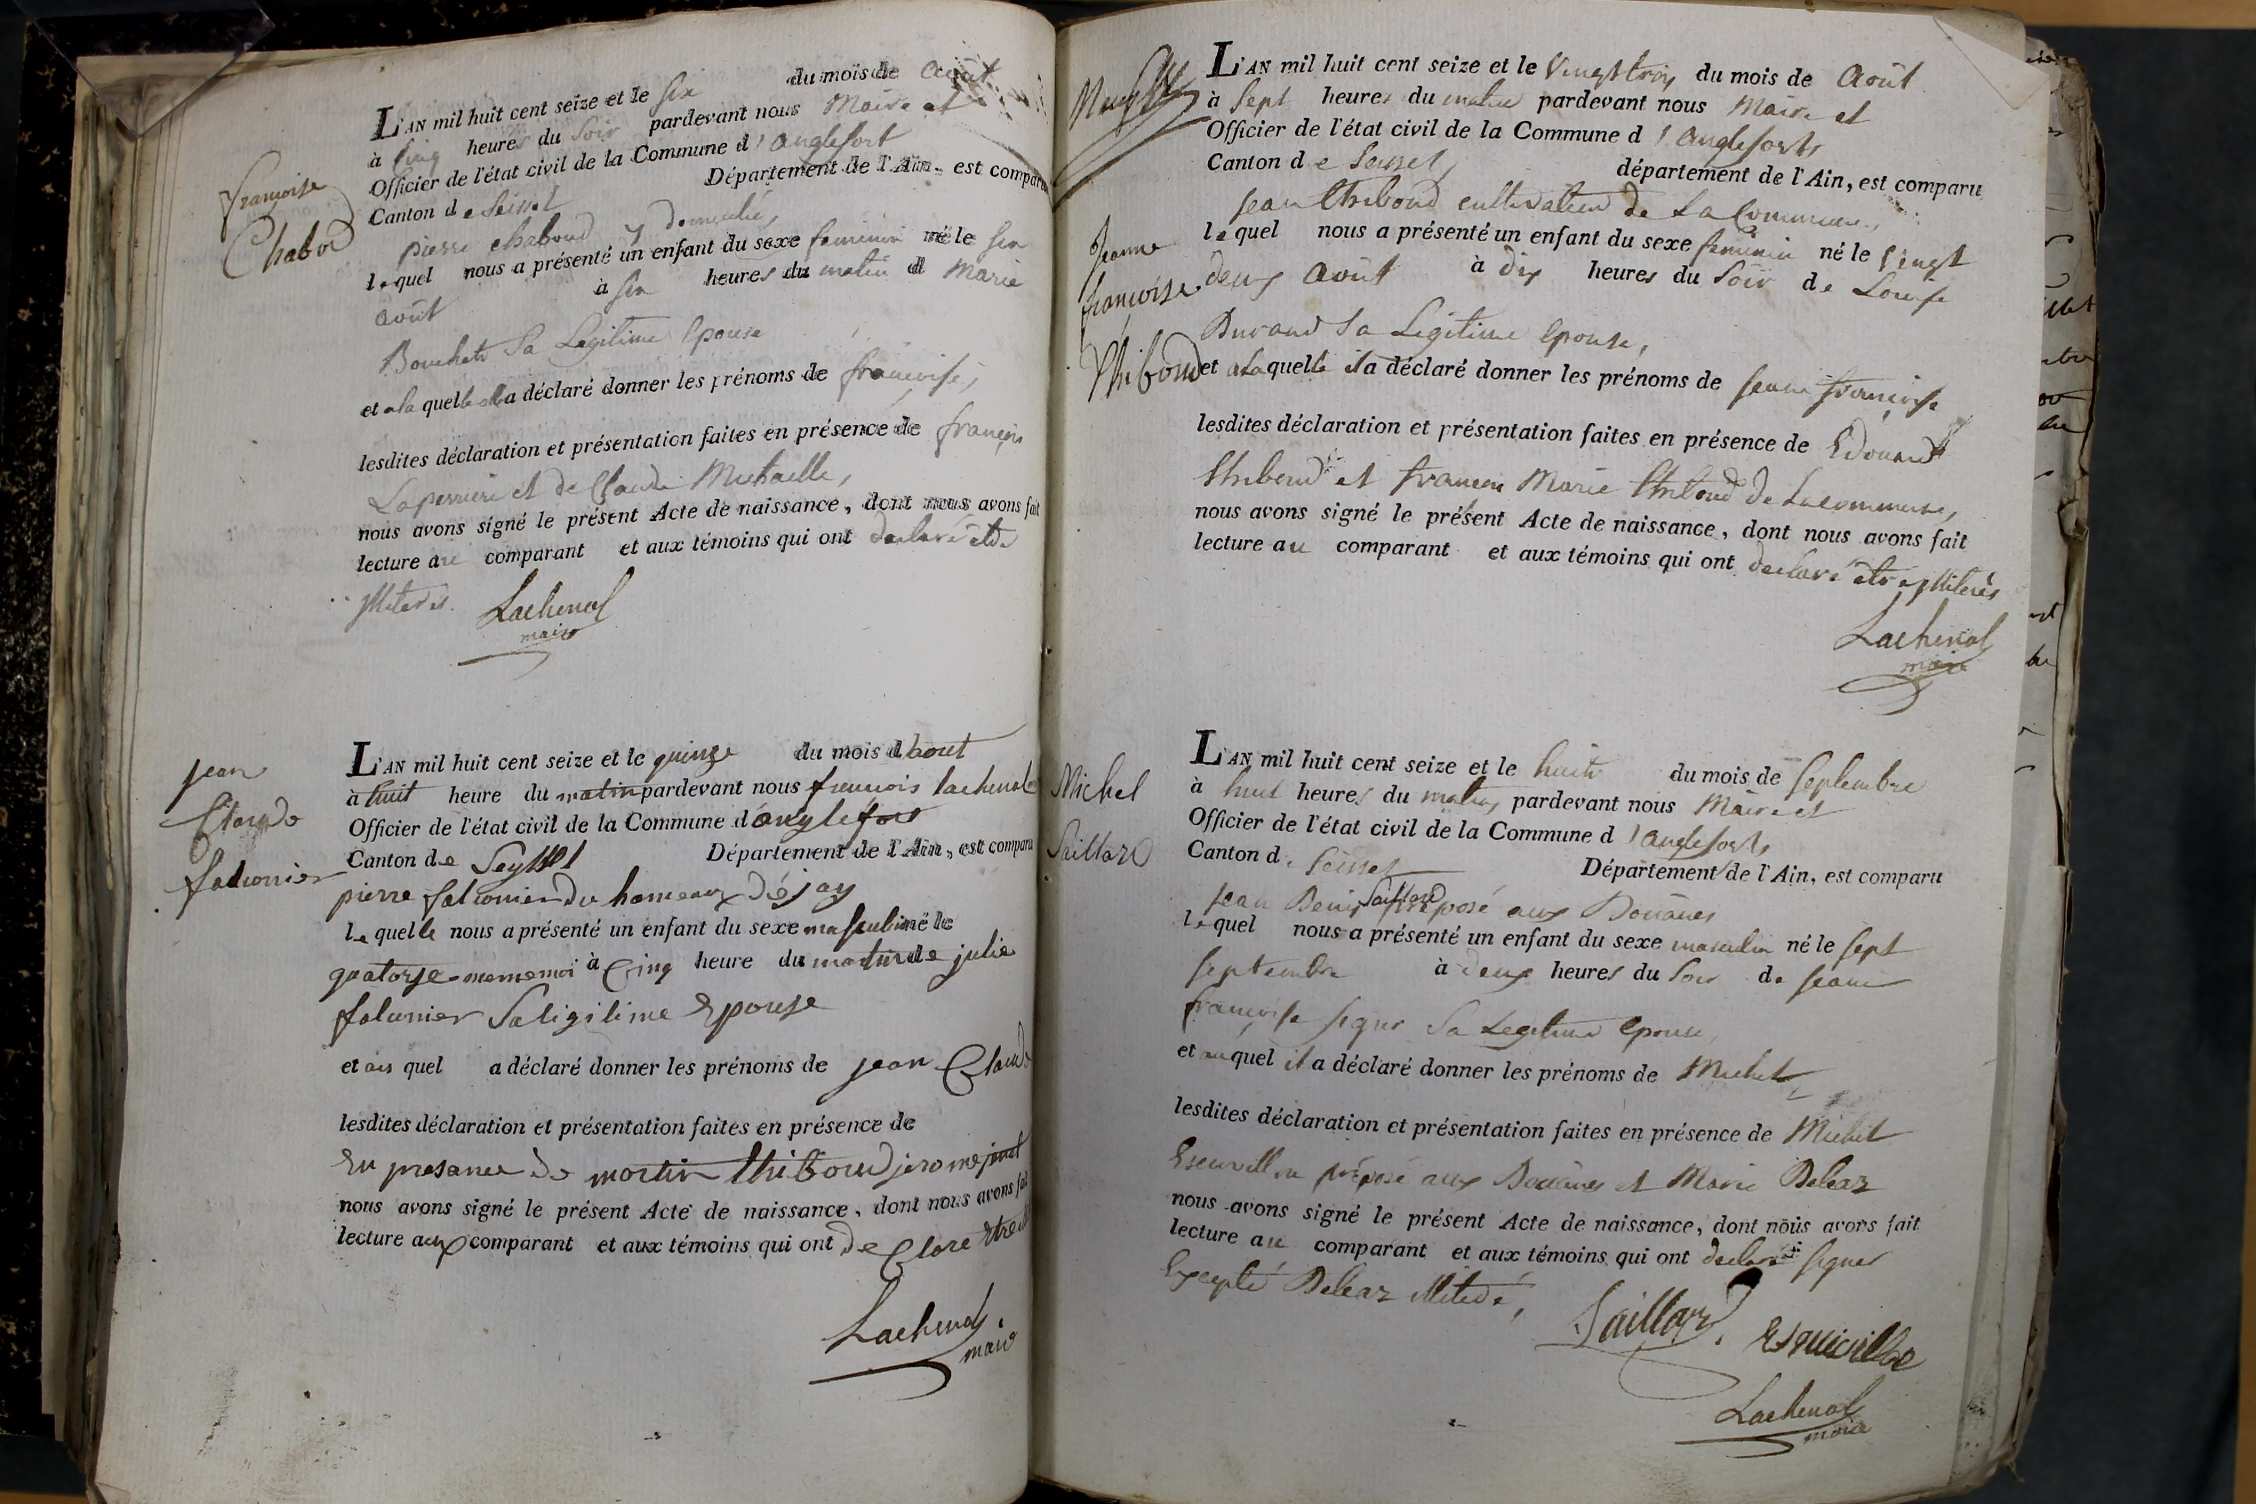 Françoise
Chabod
L'AN mil huit cent seize et le six du mois de août
à cinq heures du soir pardevant nous Maire et
Officier de l'état civil de la Commune d'anglefort
Canton de Seissel Département de l'Ain, est comparu
pierre chaboud y domicilié,
lequel nous a présenté un enfant du sexe feminin né le six
août à six heures du matin d Marie
Bouchet Sa Legitime Epouse
et a la quelle a déclaré donner les prénoms de françoise,
lesdites déclaration et présentation faites en présence de françois
Laperriere et de Claude Michaille,
nous avons signé le présent Acte de naissance, dont nous avons fait
lecture au comparant et aux témoins qui ont declaré etre
illiterés. Lachenal
maire
jean
Claude
falconier
L'AN mil huit cent seize et le quinze du mois dhout
à huit heure du matin pardevant nous francois lachenal
Officier de l'état civil de la Commune d'anglefort
Canton de Seyssel Département de l'Ain, est comparu
pierre falconier du hameaux déjay
le quelle nous a présenté un enfant du sexe masculin né le
quatorze mememoi à Cinq heure du matin de julie
falconier Saligitime Epouse
et au quel a déclaré donner les prénoms de jean Claude
lesdites déclaration et présentation faites en présence de
En presance de martin thiboud jerome
nous avons signé le présent Acte de naissance, dont nous avons fait
lecture aux comparant et aux témoins qui ont de Clare Etre
Lachenal
maire
Jeanne
françoise
Thiboud
L'AN mil huit cent seize et le vingt trois du mois de août
à Sept heures du matin pardevant nous Maire et
Officier de l'état civil de la Commune d'anglefort,
Canton de Seissel, département de l'Ain, est comparu
jean thiboud cultivateur de La Commune,
lequel nous a présenté un enfant du sexe feminin né le vingt
deux août à dix heures du soir de Louise
Durand Sa Legitime Epouse,
et a la quelle il a déclaré donner les prénoms de jeanne françoise
lesdites déclaration et présentation faites en présence de Edouard
thiboud et françois Marie thiboud de Lacommune,
nous avons signé le présent Acte de naissance, dont nous avons fait
lecture au comparant et aux témoins qui ont declaré etre illiterés
Lachenal
maire
Michel
Saillard
L'AN mil huit cent seize et le huit du mois de septembre
à huit heures du matin pardevant nous Maire et
Officier de l'état civil de la Commune d'anglefort,
Canton de Seissel Département de l'Ain, est comparu
jean Denis Saillard préposé aux Douanes
lequel nous a présenté un enfant du sexe masculin né le sept
septembre à deux heures du soir de jeanne
françoise Sa Legitime Epouse,
et auquel il a déclaré donner les prénoms de Michel,
lesdites déclaration et présentation faites en présence de Michel
préposé aux Douanes et Marie Beleaz
nous avons signé le présent Acte de naissance, dont nous avons fait
lecture au comparant et aux témoins qui ont declaré signer
Excepté Beleaz illiteré,
Saillard
Lachenal
maire